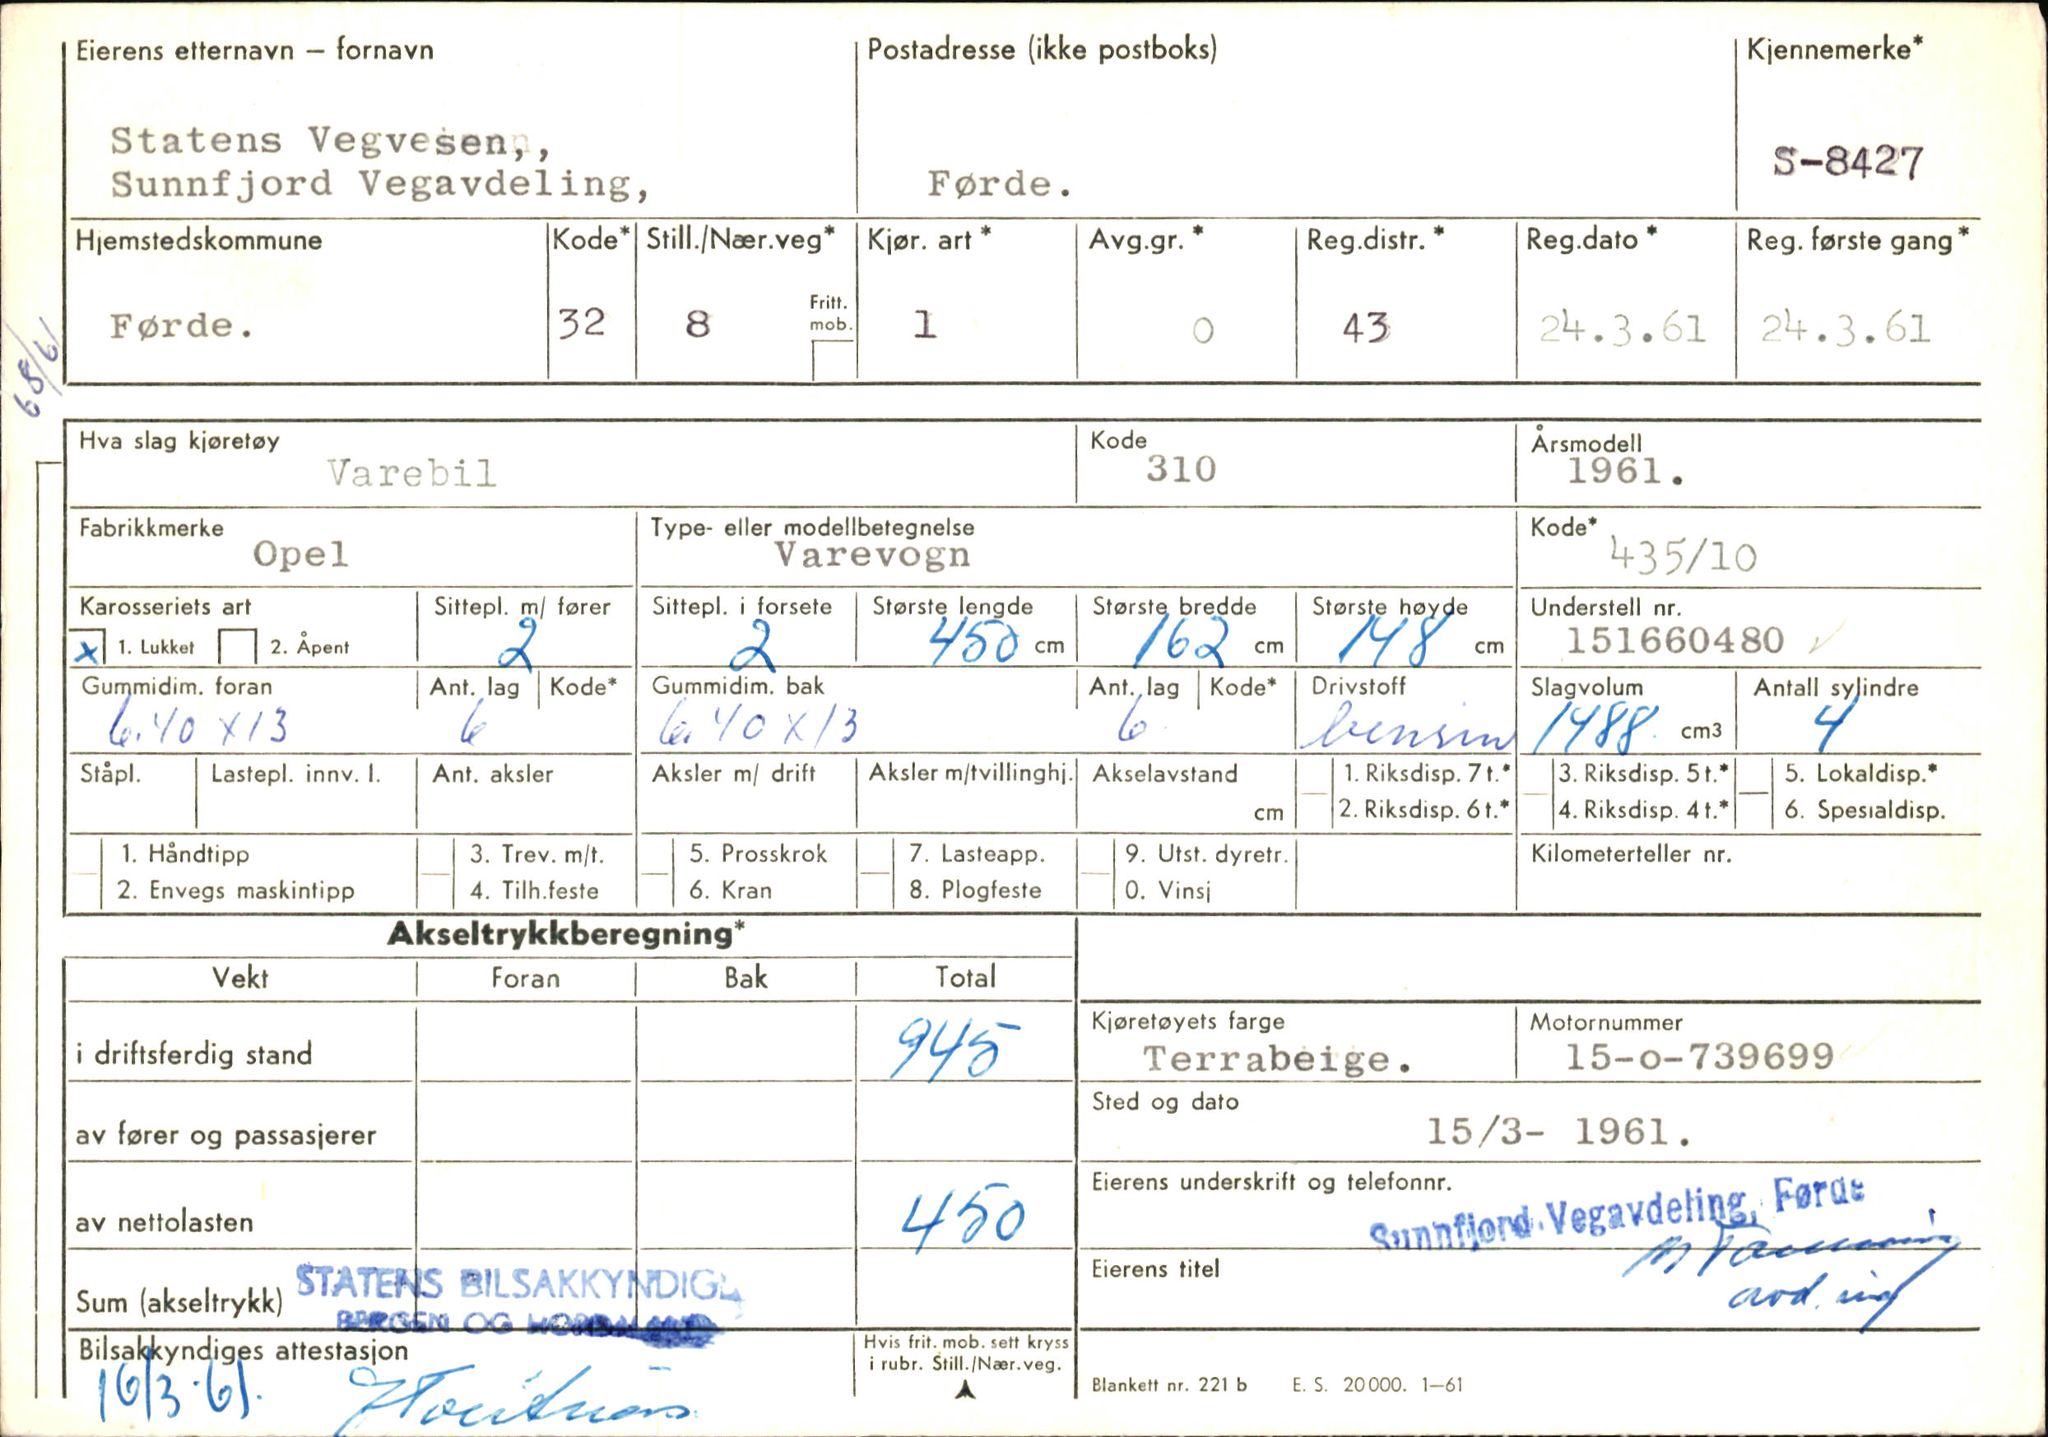 Eierens etternavn – fornavn Postadresse (ikke postboks) Kjennemerke*
Statens Vegvesen,,
Sunnfjord Vegavdeling, Førde. S-8427
Hjemstedskommune Kode* Still./Nær.veg* Kjør. art * Avg.gr. * Reg.distr. * Reg.dato * Reg. første gang *
Fritt.
mob.
Førde. 32 8 1 0 43 24.3.61 24.3.61
68/61
Hva slag kjøretøy Kode Årsmodell
Varebil 310 1961.
Fabrikkmerke Type- eller modellbetegnelse Kode*
Opel Varevogn 435/10
Karosseriets art Sittepl. m/ fører Sittepl. i forsete Største lengde Største bredde Største høyde Understell nr.
x 1. Lukket 2. Åpent 2 2 450 cm 162 cm 148 cm 151660480
Gummidim. foran Ant. lag Kode* Gummidim. bak Ant. lag Kode* Drivstoff Slagvolum Antall sylindre
6.40 x 13 6 6.40 x 13 6 bensin 1488 cm3 4
Ståpl. Lastepl. innv. l. Ant. aksler Aksler m/ drift Aksler m/tvillinghj. Akselavstand 1. Riksdisp. 7 t.* 3. Riksdisp. 5 t.* 5. Lokaldisp.*
cm 2. Riksdisp. 6 t.* 4. Riksdisp. 4 t.* 6. Spesialdisp.
1. Håndtipp 3. Trev. m/t. 5. Prosskrok 7. Lasteapp. 9. Utst. dyretr. Kilometerteller nr.
2. Envegs maskintipp 4. Tilh.feste 6. Kran 8. Plogfeste 0. Vinsj
Akseltrykkberegning*
Vekt Foran Bak Total
i driftsferdig stand 945
Kjøretøyets farge Motornummer
Terrabeige. 15-o-739699
av fører og passasjerer
Sted og dato
15/3- 1961.
av nettolasten 450
Eierens underskrift og telefonnr.
Sunnfjord Vegavdeling, Førde
Eierens titel
avd. ing
Sum (akseltrykk)
STATENS BILSAKKYNDIGE
BERGEN OG HORDALAND
Bilsakkyndiges attestasjon
16/3-61.
Hvis frit. mob. sett kryss
i rubr. Still./Nær.veg.
Blankett nr. 221 b E. S. 20000. 1–61